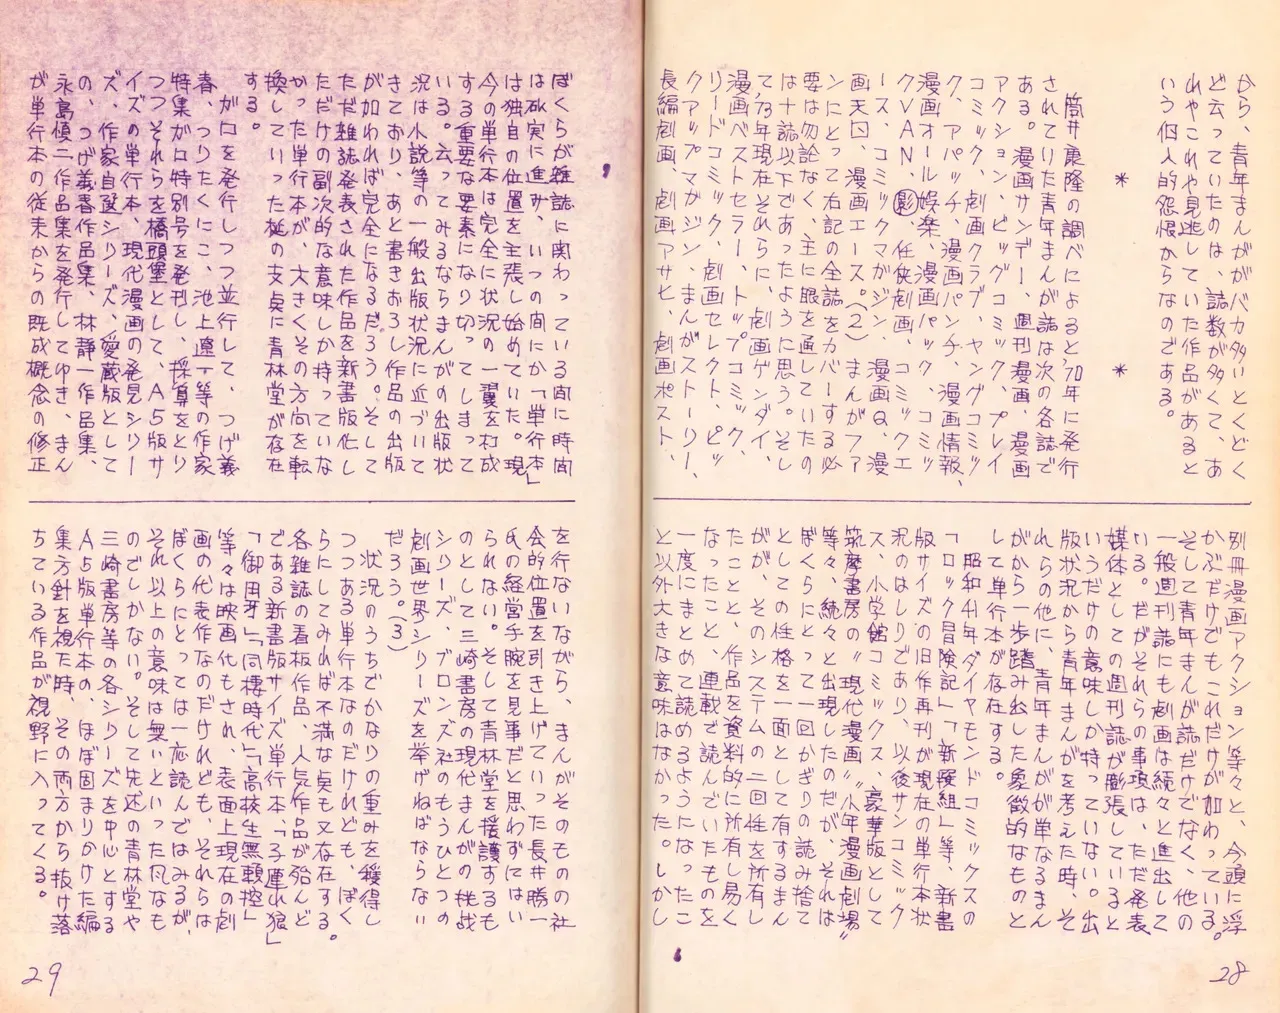 から、青年まんががバカ多いとくどく
ど云っていたのは、誌数が多くて、あ
れやこれや見逃していた作品があると
いう個人的怨恨からなのである。
＊　＊
筒井康隆の調べによると70年に発行
されていた青年まんが誌は次の各誌で
ある。漫画サンデー、週刊漫画、漫画
アクション、ビッグコミック、プレイ
コミック、劇画クラブ、ヤングコミッ
ク、アパッチ、漫画パンチ、漫画情報、
漫画オール娯楽、漫画パック、コミッ
クVAN、㊙影、任侠劇画、コミックエ
ース、コミックマガジン、漫画Q、漫
画天国、漫画エース。(2)まんがファ
ンにとって右記の全誌をカバーする必
要は勿論なく、主に眼を通していたの
は十誌以下であったように思う。そし
て、73年現在それらに、劇画ゲンダイ、
漫画ベストセラー、トップコミック、
リードコミック、劇画セレクト、ピッ
クアップマガジン、まんがストーリー、
長編劇画、劇画アサヒ、劇画ポスト、
別冊漫画アクション等々と、今頭に浮
かぶだけでもこれだけが加わっている。
そして青年まんが誌だけでなく、他の
一般週刊誌にも劇画は続々と進出して
いる。だがそれらの事項は、ただ発表
媒体としての週刊誌が膨張していると
いうだけの意味しか持っていない。出
版状況から青年まんがを考えた時、そ
れらの他に、青年まんがが単なるまん
がから一歩踏み出した象徴的なものと
して単行本が存在する。
昭和41年ダイヤモンドコミックスの
「ロック冒険記」「新選組」等、新書
版サイズの旧作再刊が現在の単行本状
況のはしりであり、以後サンコミック
ス、小学館コミックス、豪華版として
筑摩書房の〝現代漫画〟〝少年漫画劇場〟
等々、続々と出現したのだが、それは
ぼくらにとって一回かぎりの読み捨て
としての性格を一面として有するまん
がが、そのシステムの二回性を所有し
たことと、作品を資料的に所有し易く
なったこと、連載で読んでいたものを
一度にまとめて読めるようになったこ
と以外大きな意味はなかった。しかし
28
ぼくらが雑誌に関わっている間に時間
は確実に進み、いつの間にか「単行本」
は独自の位置を主張し始めていた。現
今の単行本は完全に状況の一翼を構成
する重要な要素になり切ってしまって
いる。云ってみるならまんがの出版状
況は小説等の一般出版状況に近づいて
きており、あと書きおろし作品の出版
が加われば完全になるだろう。そして
ただ雑誌発表された作品を新書版化し
ただけの副次的な意味しか持っていな
かった単行本が、大きくその方向を転
換していった核の支点に青林堂が存在
する。
ガロを発行しつつ並行して、つげ義
春、つりたくにこ、池上遼一等の作家
特集ガロ特別号を発刊し、採算をとり
つつそれらを橋頭堡として、A5版サ
イズの単行本、現代漫画の発見シリー
ズ、作家自選シリーズ、愛蔵版として
の、つげ義春作品集、林静一作品集、
永島慎二作品集を発行してゆき、まん
が単行本の従来からの既成概念の修正
を行ないながら、まんがそのものの社
会的位置を引き上げていった長井勝一
氏の経営手腕を見事だと思わずにはい
られない。そして青林堂を援護するも
のとして三崎書房の現代まんがの挑戦
シリーズ、ブロンズ社のもうひとつの
劇画世界シリーズを挙げねばならない
だろう。(3)
状況のうちでかなりの重みを獲得し
つつある単行本なのだけれども、ぼく
らにしてみれば不満な点も又存在する。
各雑誌の看板作品、人気作品が殆んど
である新書版サイズ単行本、「子連れ狼」
「御用牙」「同棲時代」「高校生無頼控」
等々は映画化もされ、表面上現在の劇
画の代表作なのだけれども、それらは
ぼくらにとっては一応読んではみるが、
それ以上の意味は無いといった风なも
のでしかない。そして先述の青林堂や
三崎書房等の各シリーズを中心とする
A5版単行本の、ほぼ固まりかけた編
集方針を視た時、その両方から抜け落
ちている作品が視野に入ってくる。
29